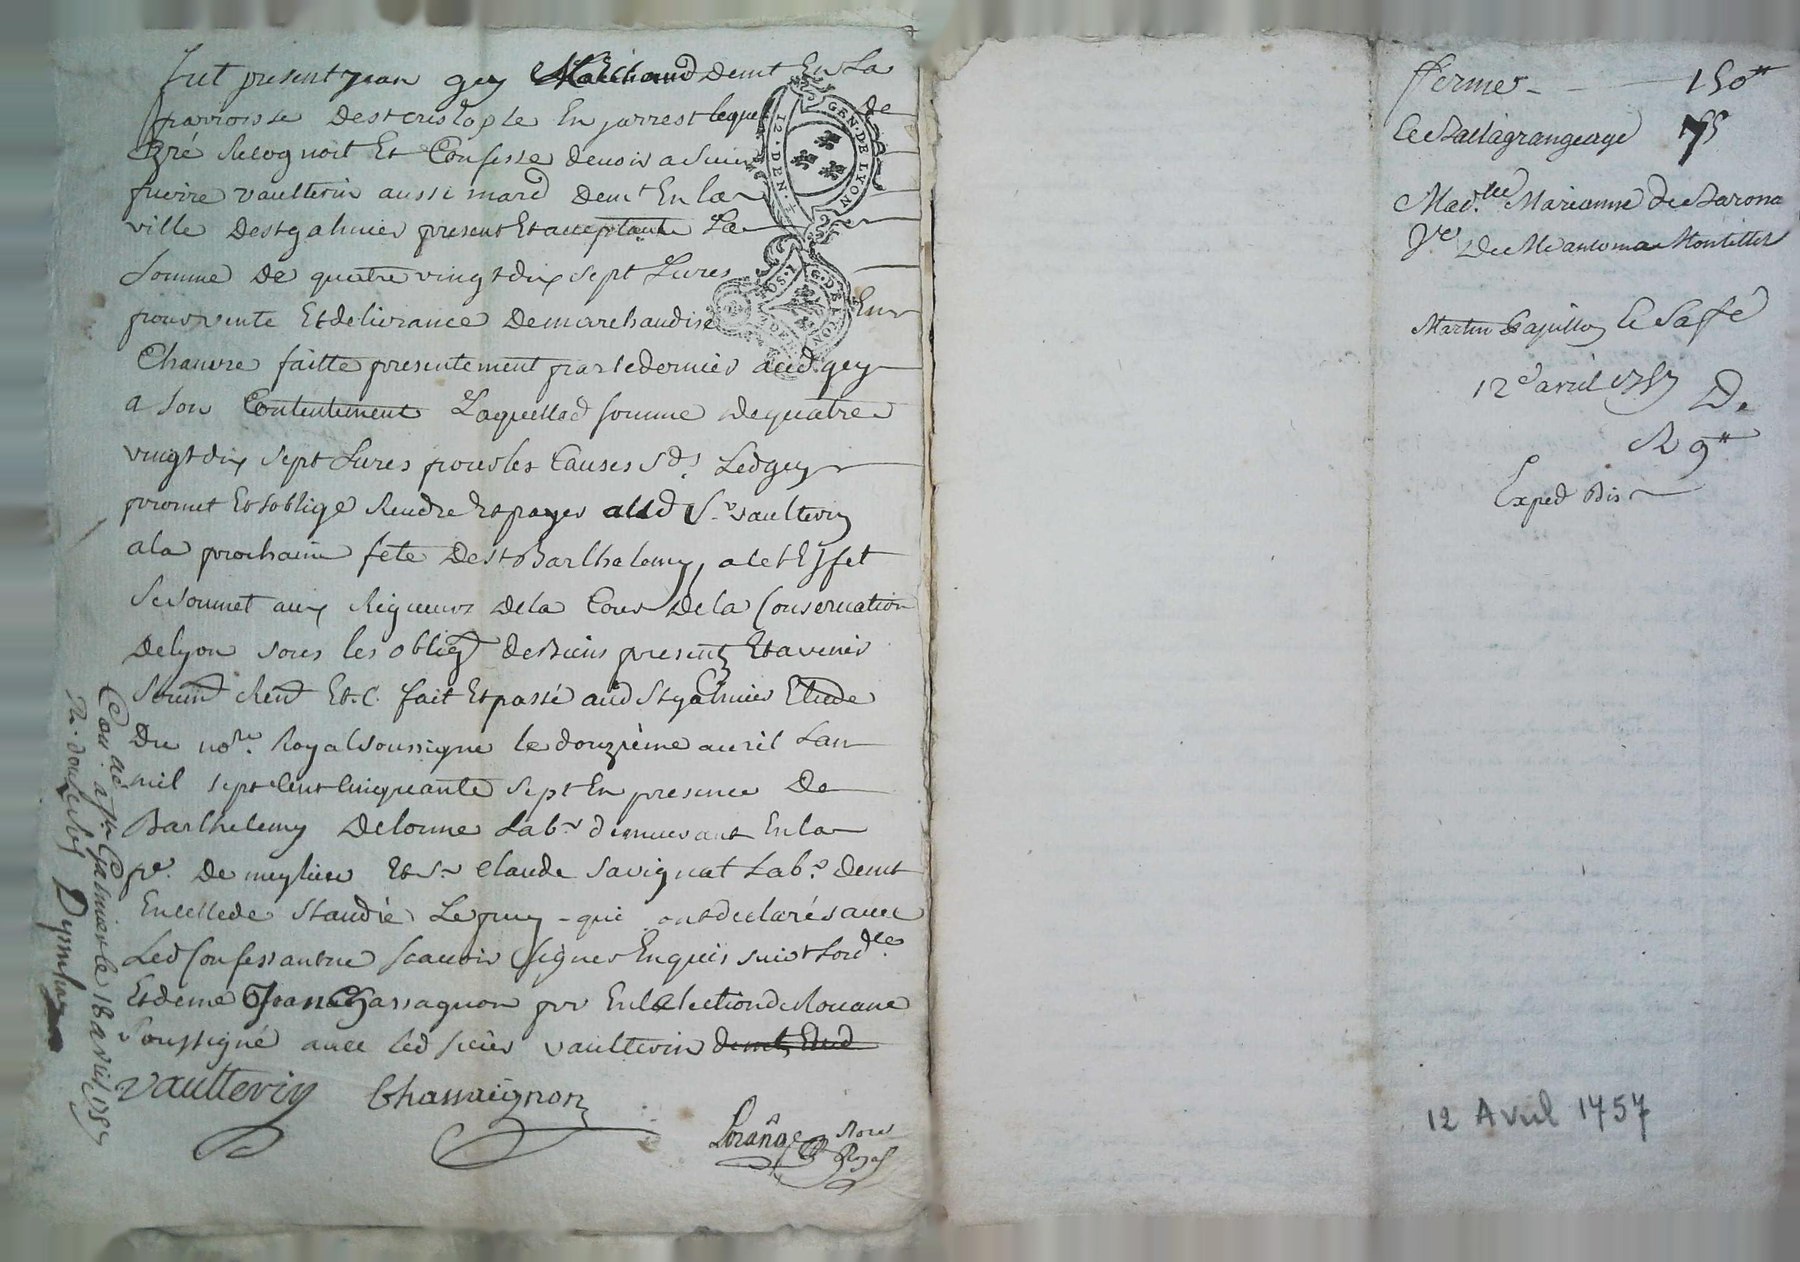 fut present jean gey Marchand demt En La
parroisse de st cristople En jarrest lequel de
gré Recognoit Et Confesse devoir a sieur
pierre vaulterin aussi marcd demt En la
ville de st galmier present Et acceptant La
somme de quatre vingt dix sept Livres
pour vente Et delivrance de marchandise En
Chanvre faitte presentement par le dernier aud. gey
a son Contentement Laquelle d somme de quatre
vingt dix sept Livres pour les Causes sds Led gey
promet Et s'oblige Rendre Et payer aud Sr vaulterin
a la prochaine fete de st Barthelemy, a cet Effet
se soumet aux Rigueurs de la Cour de la Conservation
de lyon sous les obligs de ses biens presents Et avenir
soumd Rend Et.C. fait Et passé aud St galmier Etude
du nore. Royal soussigné le douzième avril Lan
mil sept cent Cinquante sept En presence de
Barthelemy delorme Lab.r demeurant En la
pe. de meylieu Et Sr Claude savignat Lab.r demt
En celle de St andré Le puy - qui ont declarés avec
Led Confessant ne scavoir signer Enquis suivt Lord.ce
Et de me Jean Chassagnon pr En Lelection de Rouane
soussigné avec led sieur vaulterin
Vaulterin Chassaignon
Lorange Nore Royal
Con. à St Galmier le 18 avril 1757
R. douze sols
12.DEN. GEN.DE LYON
G.DE LYON
ffermes - 150#
Ce Ballagrangeage 75
Mad.lle Marianne de Sarona
Martin Papillon
12e avril 1757 D.
R 9#
Exped Bis
12 Avril 1757